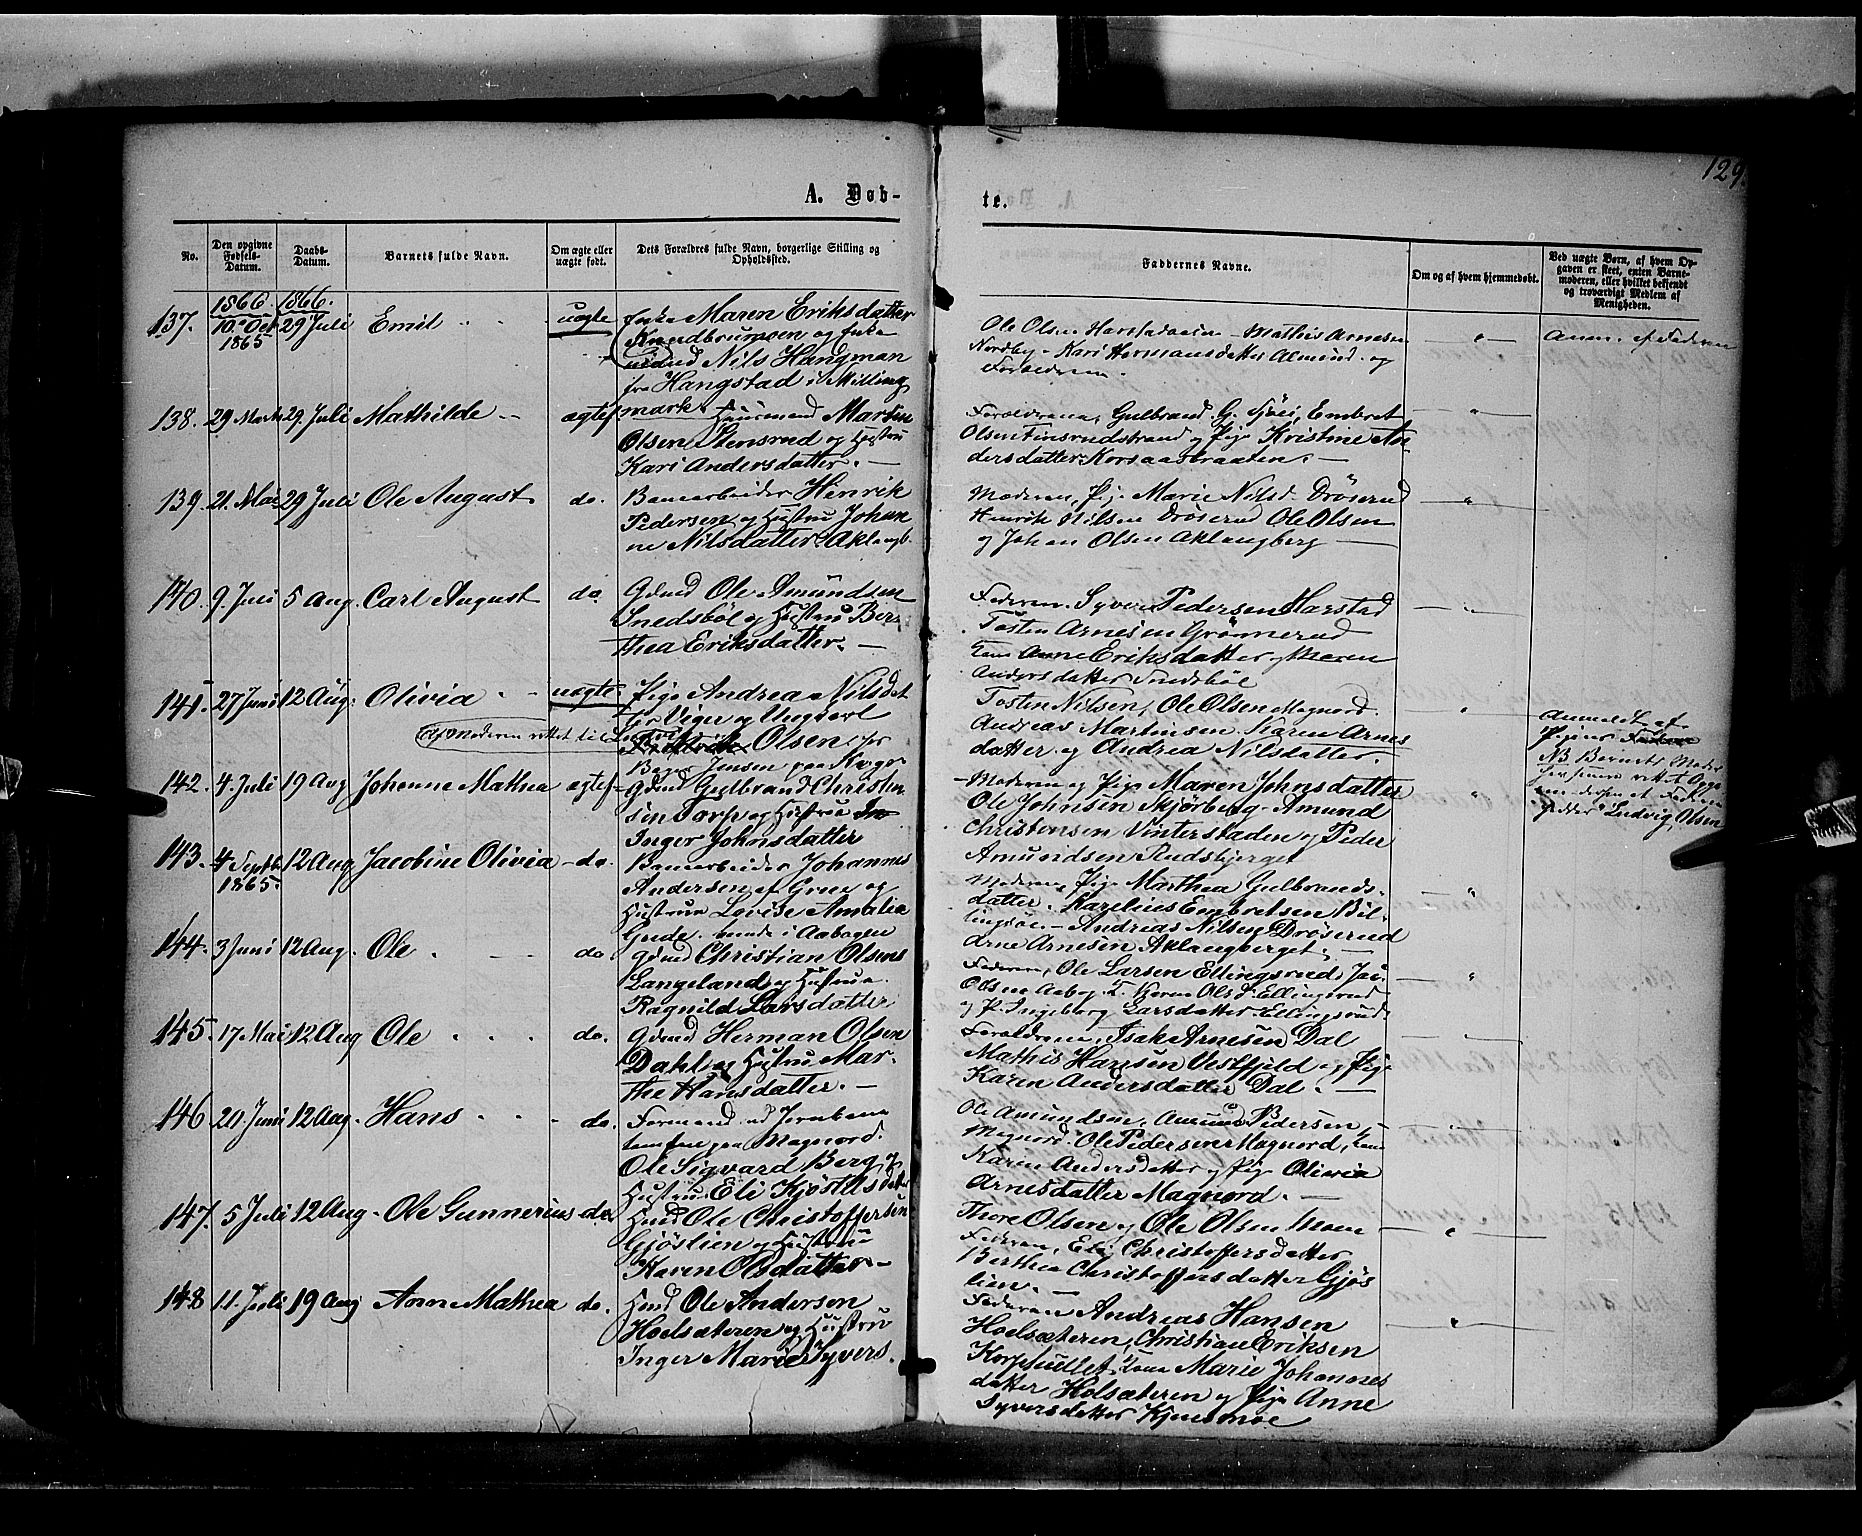 129.
A. Døb-
te.
No.
Den opgivne Fødsels-Datum.
Daabs-Datum.
Barnets fulde Navn.
Om ægte eller uægte født.
Dets Forældres fulde Navn, borgerlige Stilling og Opholdssted.
Faddernes Navne.
Om og af hvem hjemmedøbt.
Ved uægte Børn, af hvem Opgaven er skeet, enten Barnemoderen, eller hvilket bekjendt og troværdigt Medlem af Menigheden.
1866. 1866.
137. 10. Oct 1865 29 Juli Emil uægte
Enke Maren Eriksdatter
og Enke
Nils Hangman
fra Hangstad i Milling
mark.
Ole Olsen Mathis Arnesen
Nordby - Kari Hermansdatter Almund. og
Anm. af Faderen
138. 29 Marts 29. Juli Mathilde ægtef
Huusmand Martin
Olsen Stensrud og Hustru
Kari Andersdatter. —
Forældrene, Gulbrand G. Embret
Olsen Finsrudstrand og Pige Kristine An-
dersdatter Korsaasbraaten. —
139. 21. Mai 29 Juli Ole August do.
Banearbeider Henrik
Pedersen og Hustru Johan
ne Nilsdatter Aklangb.
Moderen, Pige Marie Nilsd. Drøserud
Henrik Nilsen Drøserud Ole Olsen
og Johan Olsen Aklangberg —
140. 9. Juli 5 Aug. Carl August do.
Gdmd Ole Amundsen
Snedsböl og Hustru Ber-
thea Eriksdatter. —
Faderen. Syver Pedersen Harstad
Tosten Arnesen Grönnerud
Anne Eriksdatter og Maren
Andersdatter Snedsböl
141. 27 Juni 12 Aug. Olivia uægte.
Pige Andrea Nilsdat
ter Viger og Ungkarl
Fredrik Olsen, for
Bager Jensen paa Kager
(af Moderen rettet til Ludvig
Tosten Nilsen, Ole Olsen Magnord.
Andreas Martinsen. Karen Arnes
datter og Andrea Nilsdatter.
Anmeldt af
Pigens Faderen
NB. Barnets Moder
har senere rettet Opga
ven derhen at Faderen
hedder Ludvig Olsen
142. 4. Juli 19 Aug Johanne Mathea ægtef
Gdmd Gulbrand Christen
sen Torp og Hustru In
Inger Johnsdatter
Moderen og Pige Maren Johnsdatter
Ole Johnsen Skjørberg - Amund
Christensen Vinterstaden og Peder
Amundsen Rudsbjerget
143. 4 Septb. 1865. 12 Aug Jacobine Olivia do.
Banearbeider Johannes
Andersen af Grue og
Hustrue Lovise Amalia
Gude. i Aabogen
Moderen, Pige Marthea Gulbrands-
datter. Karelius Embretsen Bil-
lingsöe. - Andreas Nilsen Drøserud
Arne Arnesen Aklangberget. —
144. 3 Juni 12 Aug. Ole do.
Gdmd Christian Olsens
Langeland og Hustrue
Ragnild Larsdatter
Faderen, Ole Larsen Ellingsrud, Jac.
Olsen Aabog. Karen Olsd. Ellingsrud
og P. Ingeborg Larsdatter Ellingsrud
145. 17 Mai 12 Aug Ole do.
Gdmd Herman Olsen
Dahl og Hustru Mar-
the Hansdatter. —
Forældrene, Isak Arnesen Dal
Mathis Hansen Vestfjeld og Pige
Karen Andersdatter Dal. —
146 20. Juni 12 Aug. Hans do.
Formand ved Jernbane
tomten paa Magnord.
Ole Sigvard Berg og
Hustru Eli Kjöstelsdatter
Ole Amundsen, Amund Pedersen,
Magnord. Ole Pedersen Magnord,
Karen Andersdatter og Pige Olivia
Arnesdatter Magnord. —
147. 5 Juli 12 Aug. Ole Gunnerius do
Hmd Ole Christoffersen
Gjöslien og Hustru
Karen Olsdatter —
Thore Olsen og Ole Olsen Moen
Faderen, Eli Christoffersdatter
Berthea Christoffersdatter Gjös
lien. —
148 11. Juli 19 Aug Anne Mathea do.
Hmd Ole Andersen
Hoelsæteren og Hustru
Inger Marie Syvers.
Faderen Andreas Hansen
Hoelsæteren, Christian Eriksen
Korpehullet, Kone Marie Johannes
datter Holsæteren og Pige Anne
Syversdatter Kjensmoe